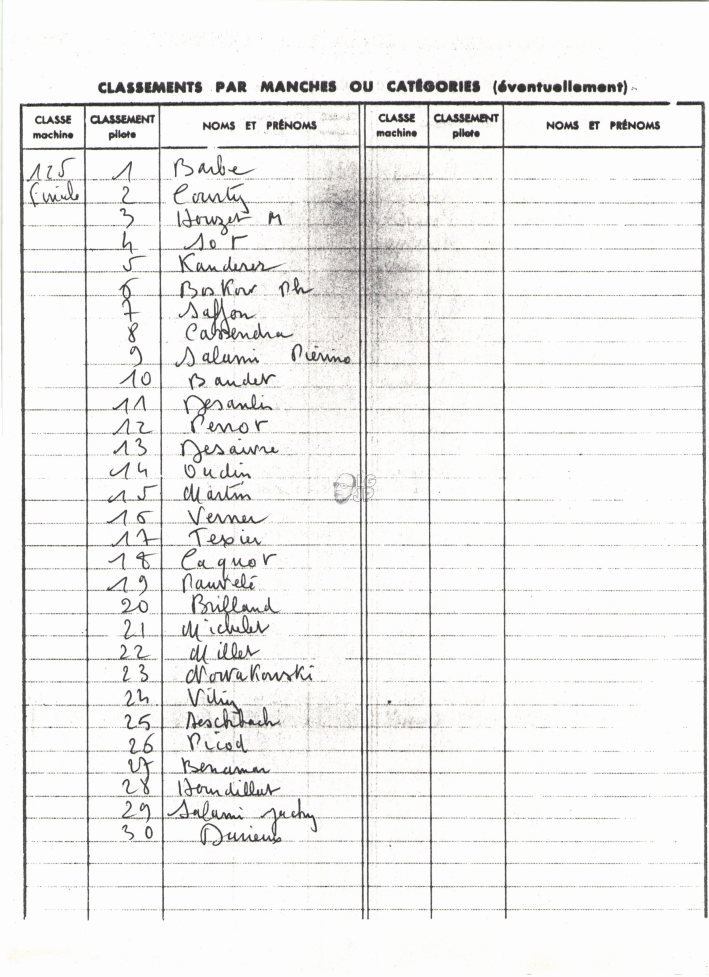 CLASSEMENTS PAR MANCHES OU CATÉGORIES (éventuellement)
CLASSE machine CLASSEMENT pilote NOMS ET PRÉNOMS CLASSE machine CLASSEMENT pilote NOMS ET PRÉNOMS
125 1 Barbe
2 County
3 Houzet M
4 Sot
5 Kanderer
6 Boskow Ph
7 Saffon
8 Cassendra
9 Salami Piérino
10 Baudet
11 Desaulis
12 Perrot
13 Desaivre
14 Oudin
15 Martin
16 Verner
17 Texier
18 Caquot
19
20 Brilland
21 Michelet
22 Millet
23 Nowakowski
24
25 Aeschbach
26 Picod
27 Benamar
28 Houdillat
29 Salami Jacky
30 Durieux